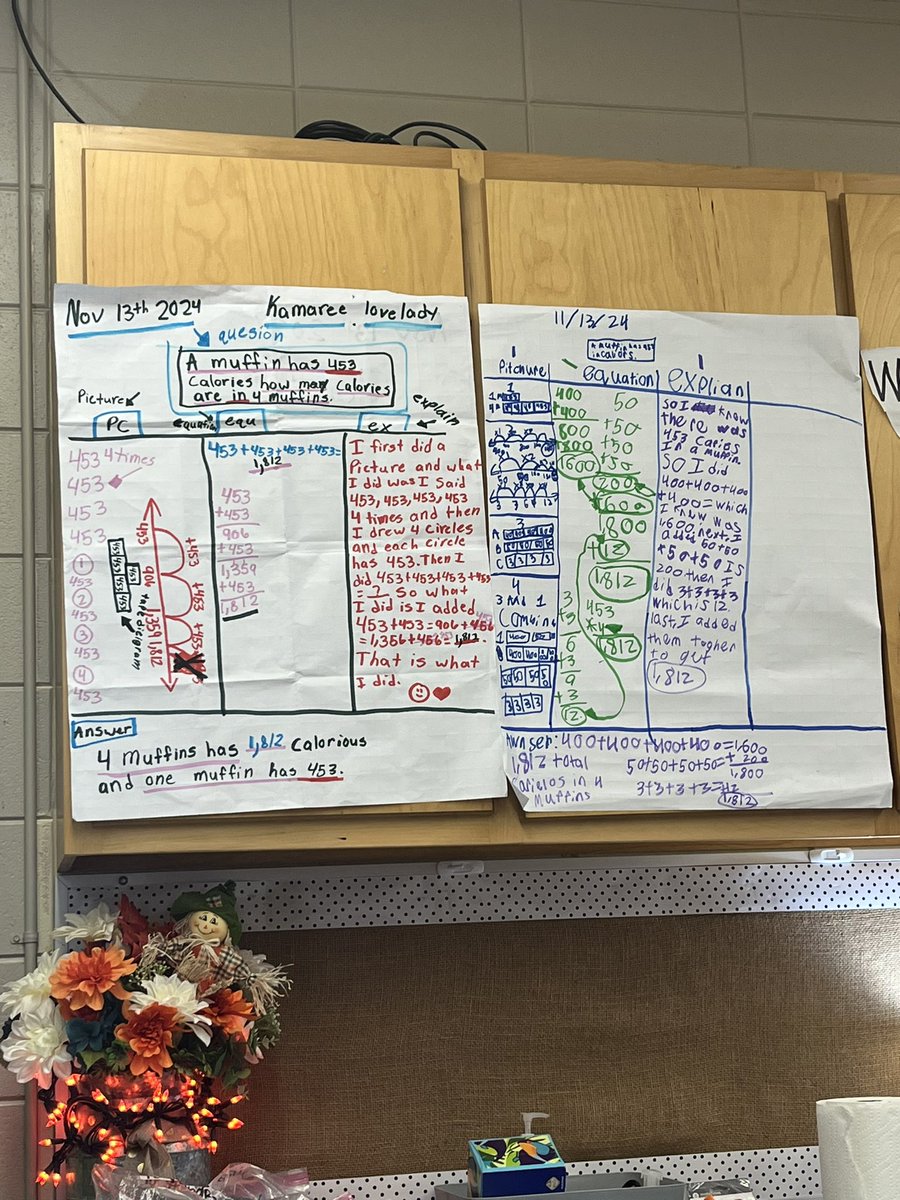 Nov 13th 2024
Kamaree lovelady
quesion
A muffin has 453
calories how many calories
are in 4 muffins.
Picture
explain
PC
equ
ex
453 4 times
453
453
453
1
453
2
453
3
453
4
453
453
906
1359
1,812
+453
+453
453
453
453
453
tape dicigram
453+453+453+453=
1,812
453
+453
906
+453
1,359
+453
1,812
I first did a
Picture and what
I did was I said
453, 453, 453, 453
4 times and then
I drew 4 circles
and each circle
has 453. Then I
did 453+453+453+453
= ? So what
I did is I added
453+453=906+456
=1,356+456=1,812.
That is what
I did.
Answer
4 muffins has 1,812 Calorious
and one muffin has 453.
11/13/24
A muffin has 453
Pitchure
equation
explian
400
+400
800
+800
1600
50
+50
+50
+50
200
1600
1800
+12
1,812
3
+3
6
+3
9
+3
12
453
×4
1,812
3
A
B
C
3 3 3 3
4
3 Md 1
Combine
3 3 3 3
So I know
there was
453 Caries
In a muffin.
So I did
400+400+400
+400=which
I knaw was
1,600 next, I
added 50+50
+50+50 IS
200 then I
did 3+3+3+3
which is 12.
last, I added
them togher
to get
1,812
Awnser: 400+400+400+400=1,600
1,812 total
in 4
Muffins
50+50+50+50=+200
1,800
3+3+3+3=+12
1,812
W